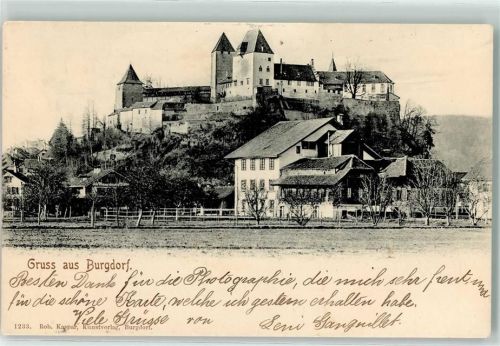 Gruss aus Burgdorf.
Besten Dank für die Photographie, die mich sehr freut und
für die schöne Karte, welche ich gestern erhalten habe.
Viele Grüsse von Leni Ganguillet.
1233. Rob. Kaspar, Kunstverlag, Burgdorf.